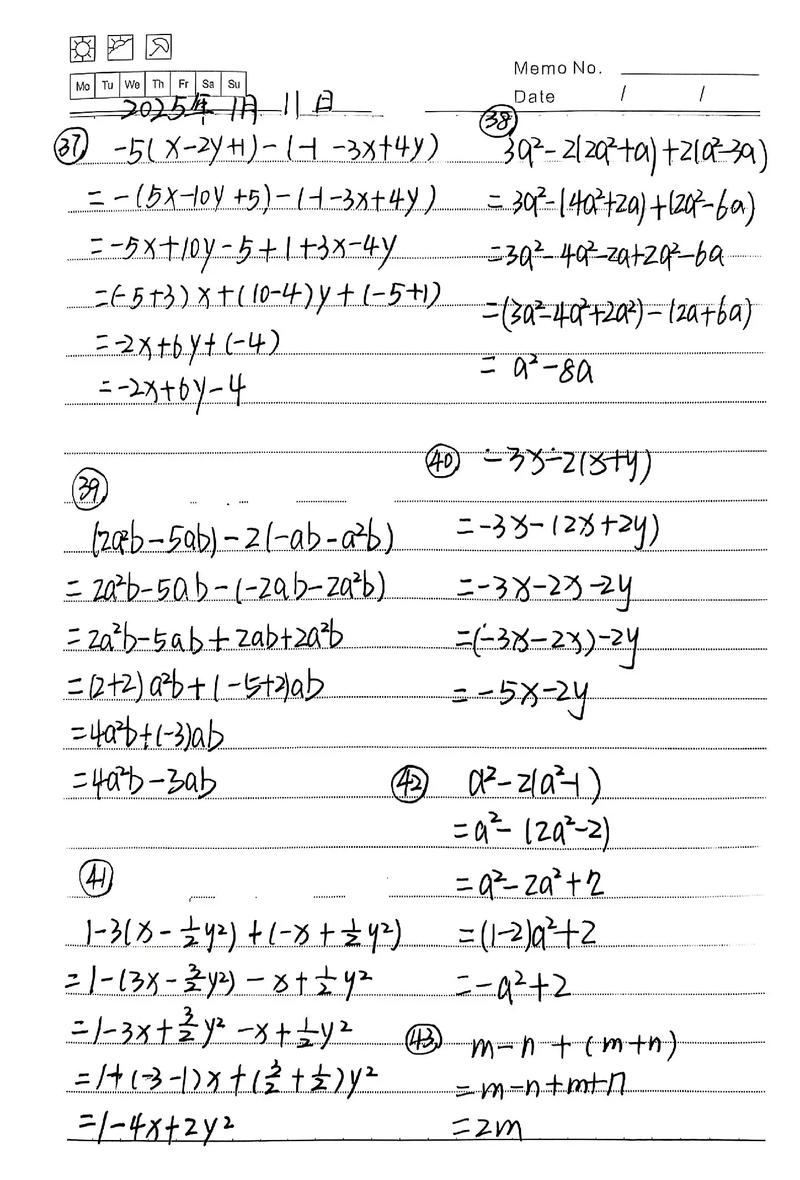 Memo No.
Mo Tu We Th Fr Sa Su
Date / /
2025年1月11日
㊲ -5(x-2y+1)-(-1-3x+4y)
=-(5x-10y+5)-(-1-3x+4y)
=-5x+10y-5+1+3x-4y
=(-5+3)x+(10-4)y+(-5+1)
=-2x+6y+(-4)
=-2x+6y-4
㊳
3a²-2(2a²+a)+2(a²-3a)
=3a²-(4a²+2a)+(2a²-6a)
=3a²-4a²-2a+2a²-6a
=(3a²-4a²+2a²)-(2a+6a)
=a²-8a
㊴
(2a²b-5ab)-2(-ab-a²b)
=2a²b-5ab-(-2ab-2a²b)
=2a²b-5ab+2ab+2a²b
=(2+2)a²b+(-5+2)ab
=4a²b+(-3)ab
=4a²b-3ab
㊵ -3x-2(x+y)
=-3x-(2x+2y)
=-3x-2x-2y
=(-3x-2x)-2y
=-5x-2y
㊶
1-3(x-½y²)+(-x+½y²)
=1-(3x-3/2y²)-x+½y²
=1-3x+3/2y²-x+½y²
=1+(-3-1)x+(3/2+½)y²
=1-4x+2y²
㊷ a²-2(a²-1)
=a²-(2a²-2)
=a²-2a²+2
=(1-2)a²+2
=-a²+2
㊸ m-n+(m+n)
=m-n+m+n
=2m